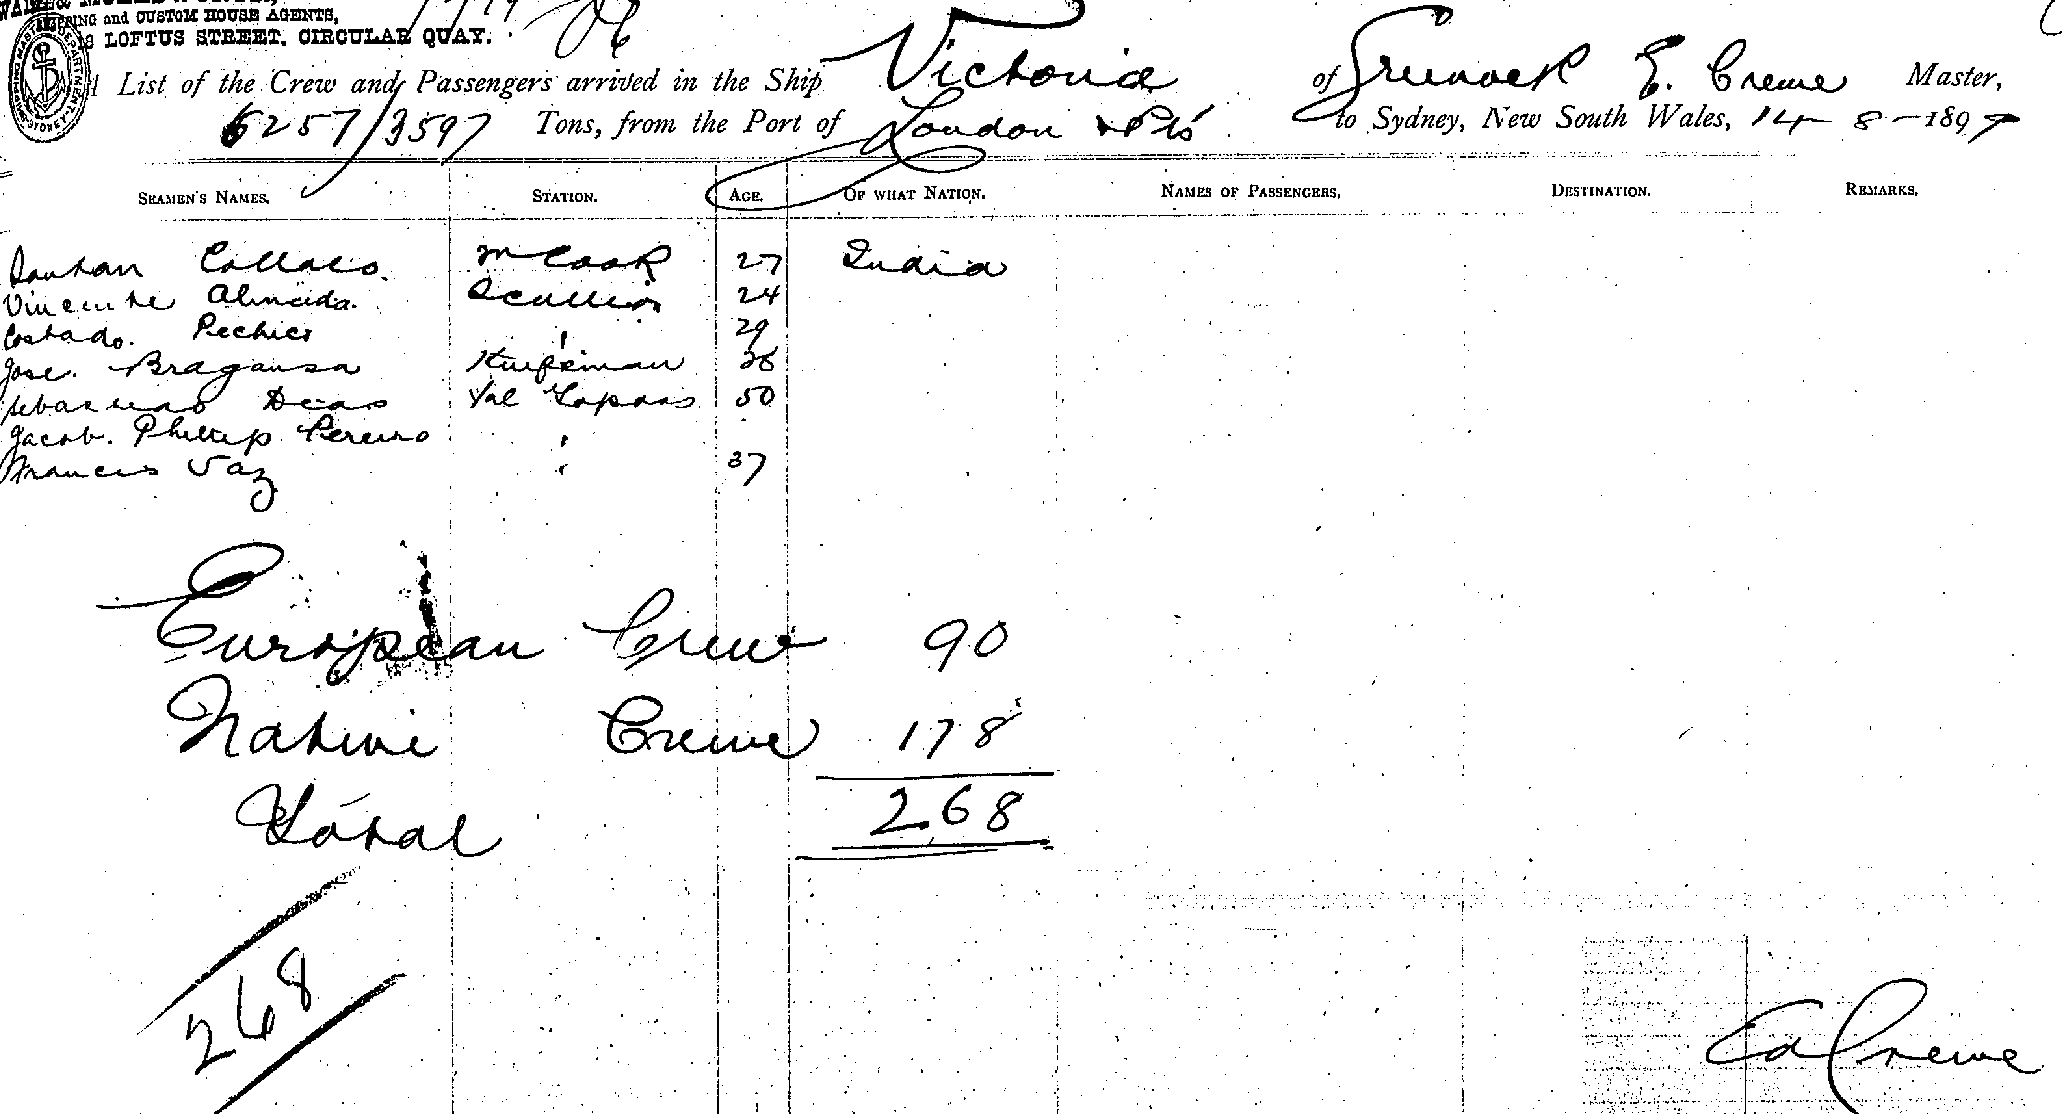 SHIPPING and CUSTOM HOUSE AGENTS,
LOFTUS STREET, CIRCULAR QUAY.
List of the Crew and Passengers arrived in the Ship Victoria of Greenock E. Crewe Master,
6257/3597 Tons, from the Port of London & Pts to Sydney, New South Wales, 14-8-1897
SEAMEN'S NAMES. STATION. AGE. OF WHAT NATION. NAMES OF PASSENGERS. DESTINATION. REMARKS.
Collaco. m Cook 27 India
Vincente Almeida. Scullion 24
29
Jose. Bragansa Knifeman
Dias 50
Jacob. Phillip Pereiro "
Francis Vaz " 37
European Crew 90
Native Crewe 178
Total 268
268
Ed Crewe